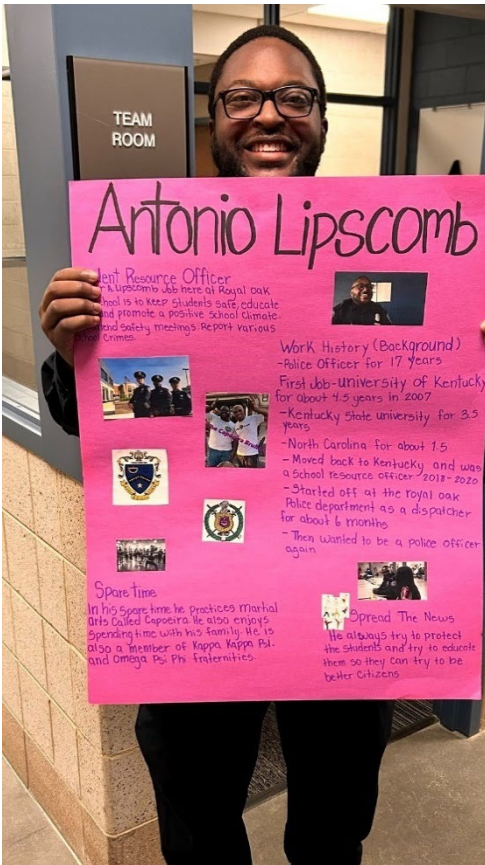 TEAM
ROOM
Antonio Lipscomb
ent Resource Officer
Lipscomb Job here at Royal oak
hool is to keep students safe, educate
and promote a positive School Climate
end safety meetings. Report various
School Crimes.
Work History (Background)
-Police Officer for 17 years
First Job-university of Kentucky
for about 4.5 years in 2007
-Kentucky State university for 3.5
years
-North Carolina for about 1.5
-Moved back to Kentucky and was
a School resource officer 2018-2020
-Started off at the royal oak
Police department as a dispatcher
for about 6 months
-Then wanted to be a police officer
again
Spare time
In his spare time he practices martial
arts Called Capoeira. He also enjoys
spending time with his family. He is
also a member of Kappa Kappa Psi.
and Omega Psi Phi fraternities.
Spread The News
He always try to protect
the students and try to educate
them so they can try to be
better Citizens